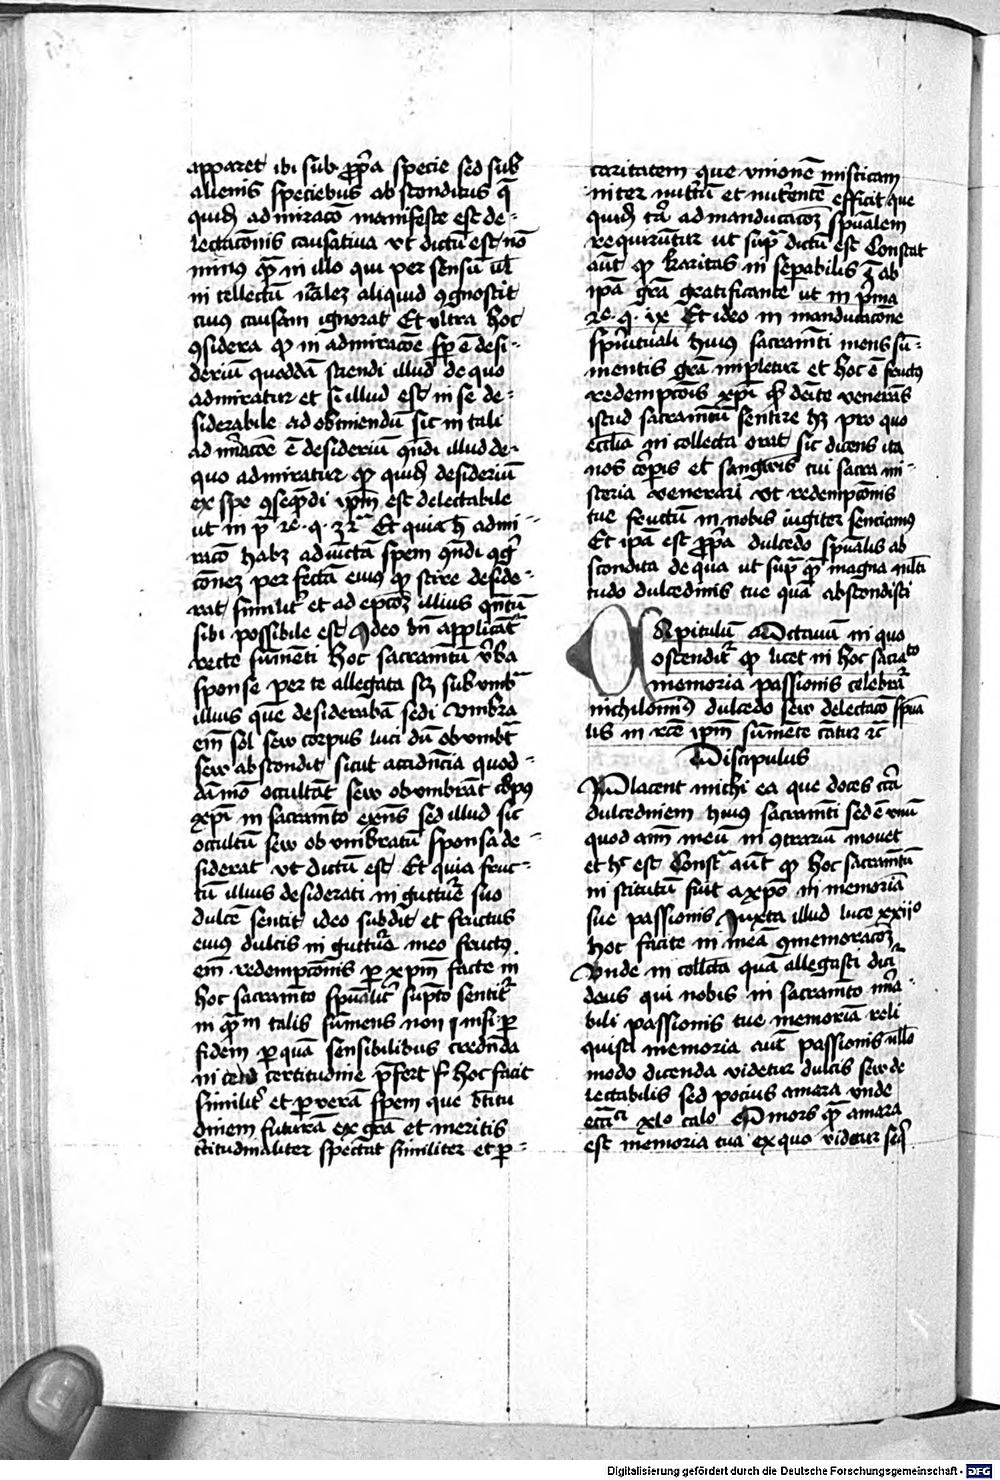 apparet ibi sub ꝓp̄a specie sed sub
alienis speciebus absconditus q̄
quid̄ admiracō manifeste est de-
lectacōnis causatiua vt dictū est nō
minꝰ qᷓ in illo qui per sensū ul̄
intellectū nālez aliquid ꝯgnoscit
cuiꝰ causam ignorat Et vltra hoc
ꝯsidera ꝙ in admiracōe sp̄ ē desi-
deriū quoddā sciendi illud de quo
admiratur et si illud est in se de-
siderabile ad obtinendū sic in tali
admiracōe ē desideriū qn̄di illud de
quo admiratur ꝙ quid̄ desideriū
ex spe ꝯseqn̄di ip̄m est delectabile
ut in p̄ 2e q 32 Et quia h̄ admi-
racō habz adiūctā spem
per fectā eiuꝰ ꝙ scire deside-
rat similiꝉ et ad illius qn̄tū
sibi possibile est Ideo bn̄ applicāt᷑
recte sumēti hoc sacramtū v̄ba
sponse per te allegata scꝫ sub vmbᷓ
illius quē desiderabā sedi Vmbra
em̄ sol seu corpus lucidū obvmbt᷑
seu abscondit sicut accidn̄cia quod-
dāmō occultāt seu obvmbrāt corpꝰ
xp̄i in sacramto exn̄s sed illud sic
occultū seu obvmbratū sponsa de-
siderat vt dictū est Et quia fruc-
tū illius desiderati in gutture suo
dulcē sentit ideo subdit et fructus
eiuꝰ dulcis in gutturi meo fructꝰ
em̄ redempcōnis ꝑ xp̄m facte in
hoc sacramto spūalit᷑ supto sentit᷑
in qᷓm talis sumens non nisi ꝑ
fidem ꝑ quā sensibilibus credn̄da
in certitudine p̄fert hoc facit
similit᷑ et ꝑ verā spem que
dinem futurā ex grā et meritis
c̄titudinaliter spectat similiter et ꝑ-
caritatem que vnionē misticam
inter nut̄tū et nut̄entē efficit que
quid̄ tria ad manducacōꝫ spūalem
requiruntur ut supᷓ dictū est Constat
aūt ꝙ karitas inseparabilis ab
ipā grā gratificante ut in p̄ma
2e q ix Et ideo in manducacōne
spirituali huiꝰ sacramti mens su-
mentis grā impletur et hoc ē fructꝰ
redempcōis xp̄i qᷓ venerās
istud sacramtū sentire hꝫ pro quo
eccl̄ia in collecta orat sic dicens ita
nos corpis et sanguis tui sacra mi-
steria venerari vt redempcōnis
tue fructū in nobis iugiter senciamꝰ
Et ipā est ꝓp̄a dulcedo spūalis ab
scondita de qua ut supᷓ qᷓ magna mlti
tudo dulcedinis tue quā abscondisti
Capitulū Octauū in quo
ostendit᷑ ꝙ licet in hoc sacrato
memoria passionis celebrat᷑
nichilominꝰ dulcedo seu delectacō spūa
lis in ip̄m sumēte cātur 2c̄
Discipulus
Placent michi ea que doces circa
dulcedinem huiꝰ sacramti sed ē vnū
quod aīm meū in ꝯtrariū mouet
et hoc est Constat aūt ꝙ hoc sacramtū
institutū fuit a xpo in memoriā
sue passionis Iuxta illud luce xxijº
hoc facite in meā ꝯmemoracōꝫ
Vnde in collcta quā allegasti dicit᷑
deus qui nobis in sacramto mira-
bili passionis tue memoriā reli
quisti memoria aūt passionis nullo
modo dicenda videtur dulcis seu de
lectabilis sed pocius amara vnde
xlº calº O mors qᷓ amara
est memoria tua ex quo videtur seqͥ
Digitalisierung gefördert durch die Deutsche Forschungsgemeinschaft - DFG